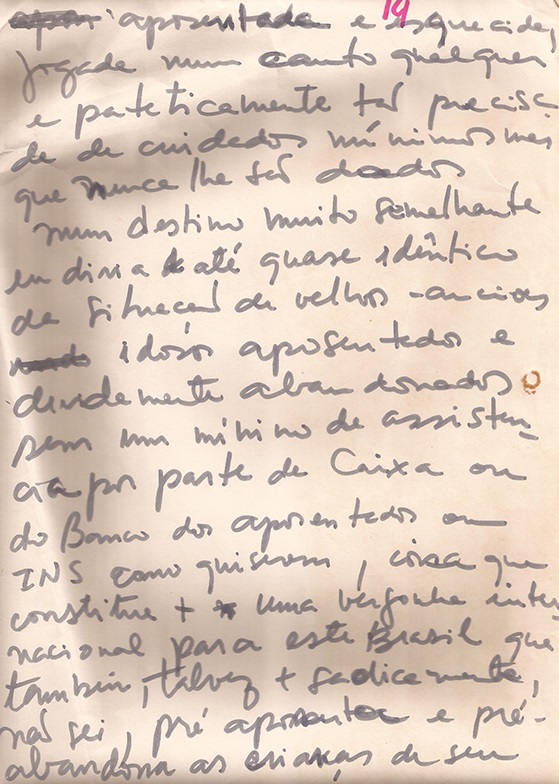 19
aposentada e esquecida,
jogada num canto qualquer
e pateticamente tão precisa
da de cuidados mínimos mas
que nunca lhe são dados
num destino muito semelhante
eu diria até quase idêntico
da situação de velhos - anciões
idosos aposentados e
dividamente abandonados
sem um mínimo de assistên
cia por parte de Caixa ou
do Banco dos aposentados ou
INS como quiserem, coisa que
constitue + uma vergonha inter
nacional para este Brasil que
também, talvez + sadicamente,
não sei, pré aposenta e pré-
abandona as crianças de seu